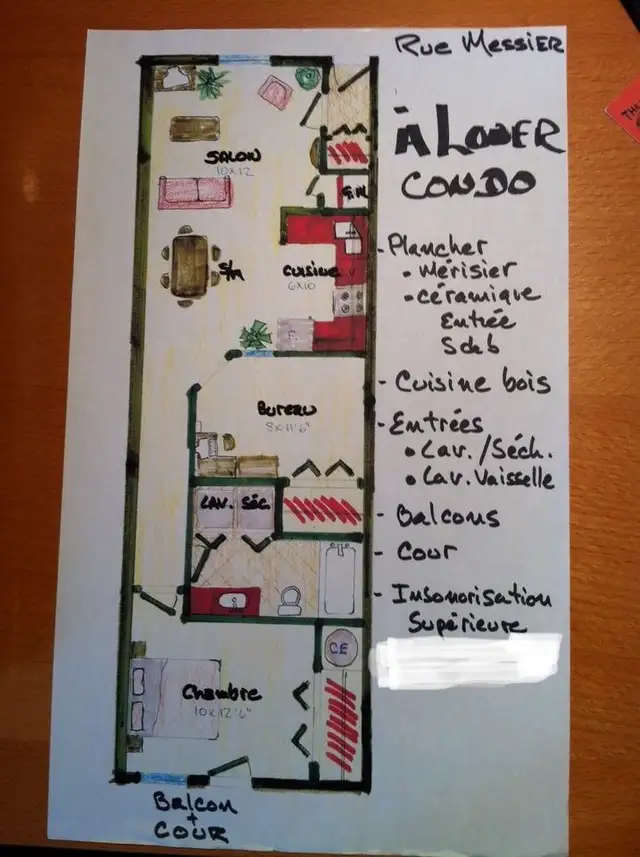 Rue Messier
À Louer
Condo
- Plancher
• Mérisier
• céramique
Entrée
Sdeb
- Cuisine bois
- Entrées
• Lav./Séch.
• Lav. Vaisselle
- Balcons
- Cour
- Insonorisation
Supérieure
Salon
10x12
G.M
S/M
Cuisine
6x10
Bureau
8x11'6"
Lav. Séc.
CE
Chambre
10x12'6"
Balcon
+
Cour